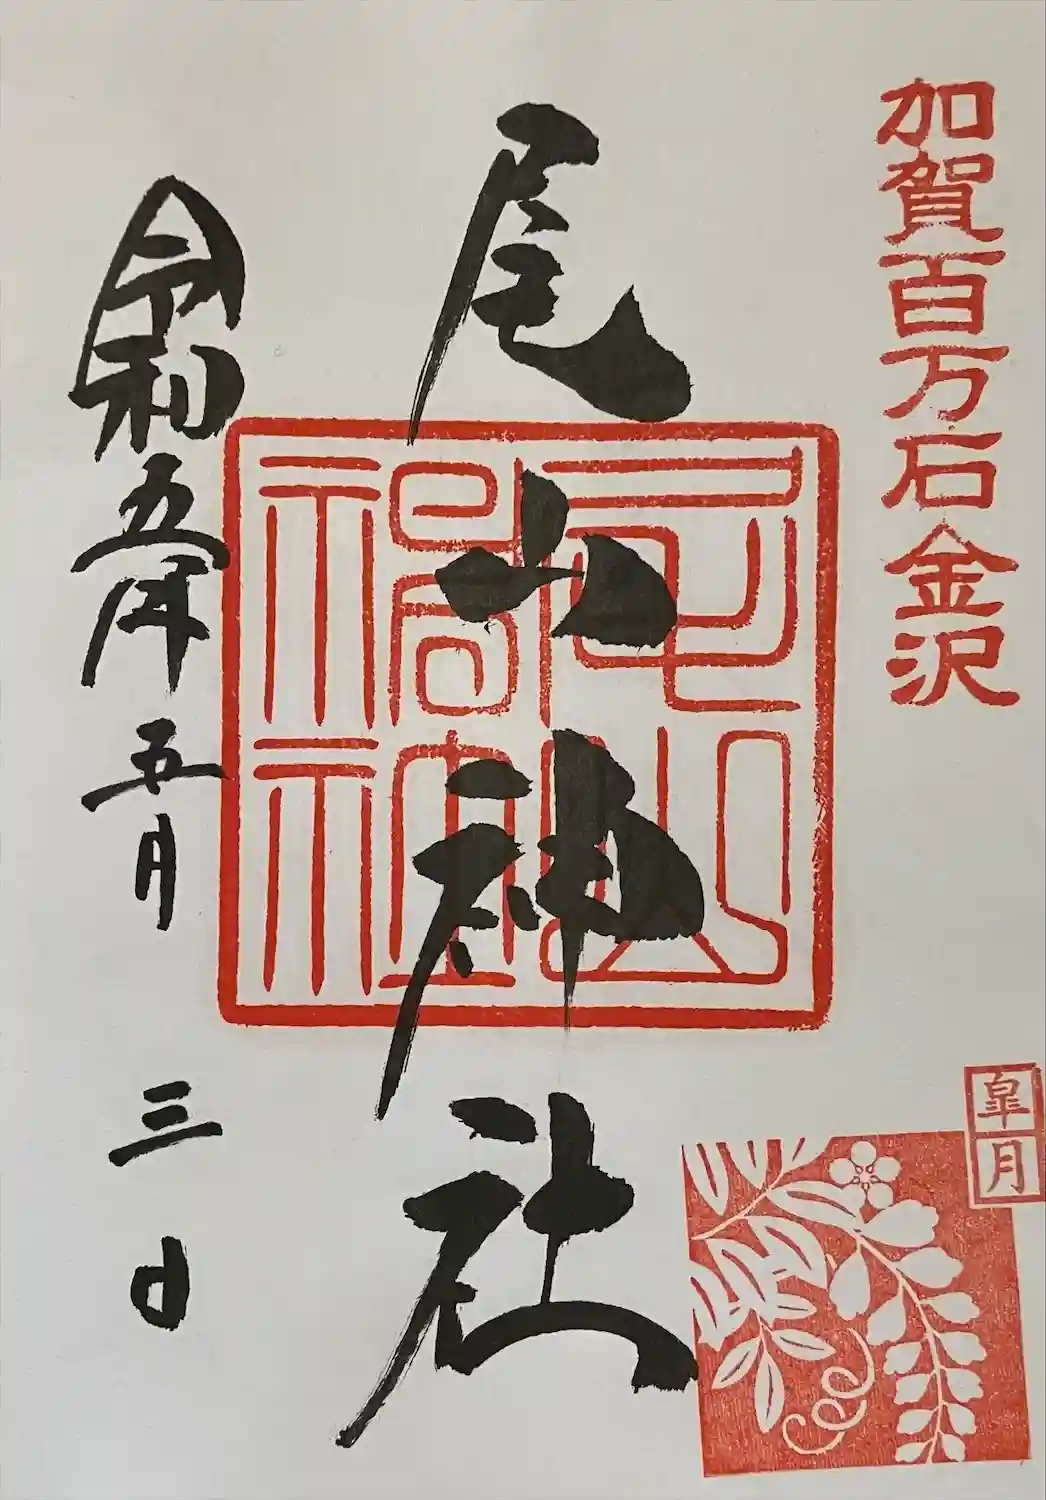 加賀百万石金沢
皐月
尾山神社
尾山神社
令和五年五月三日